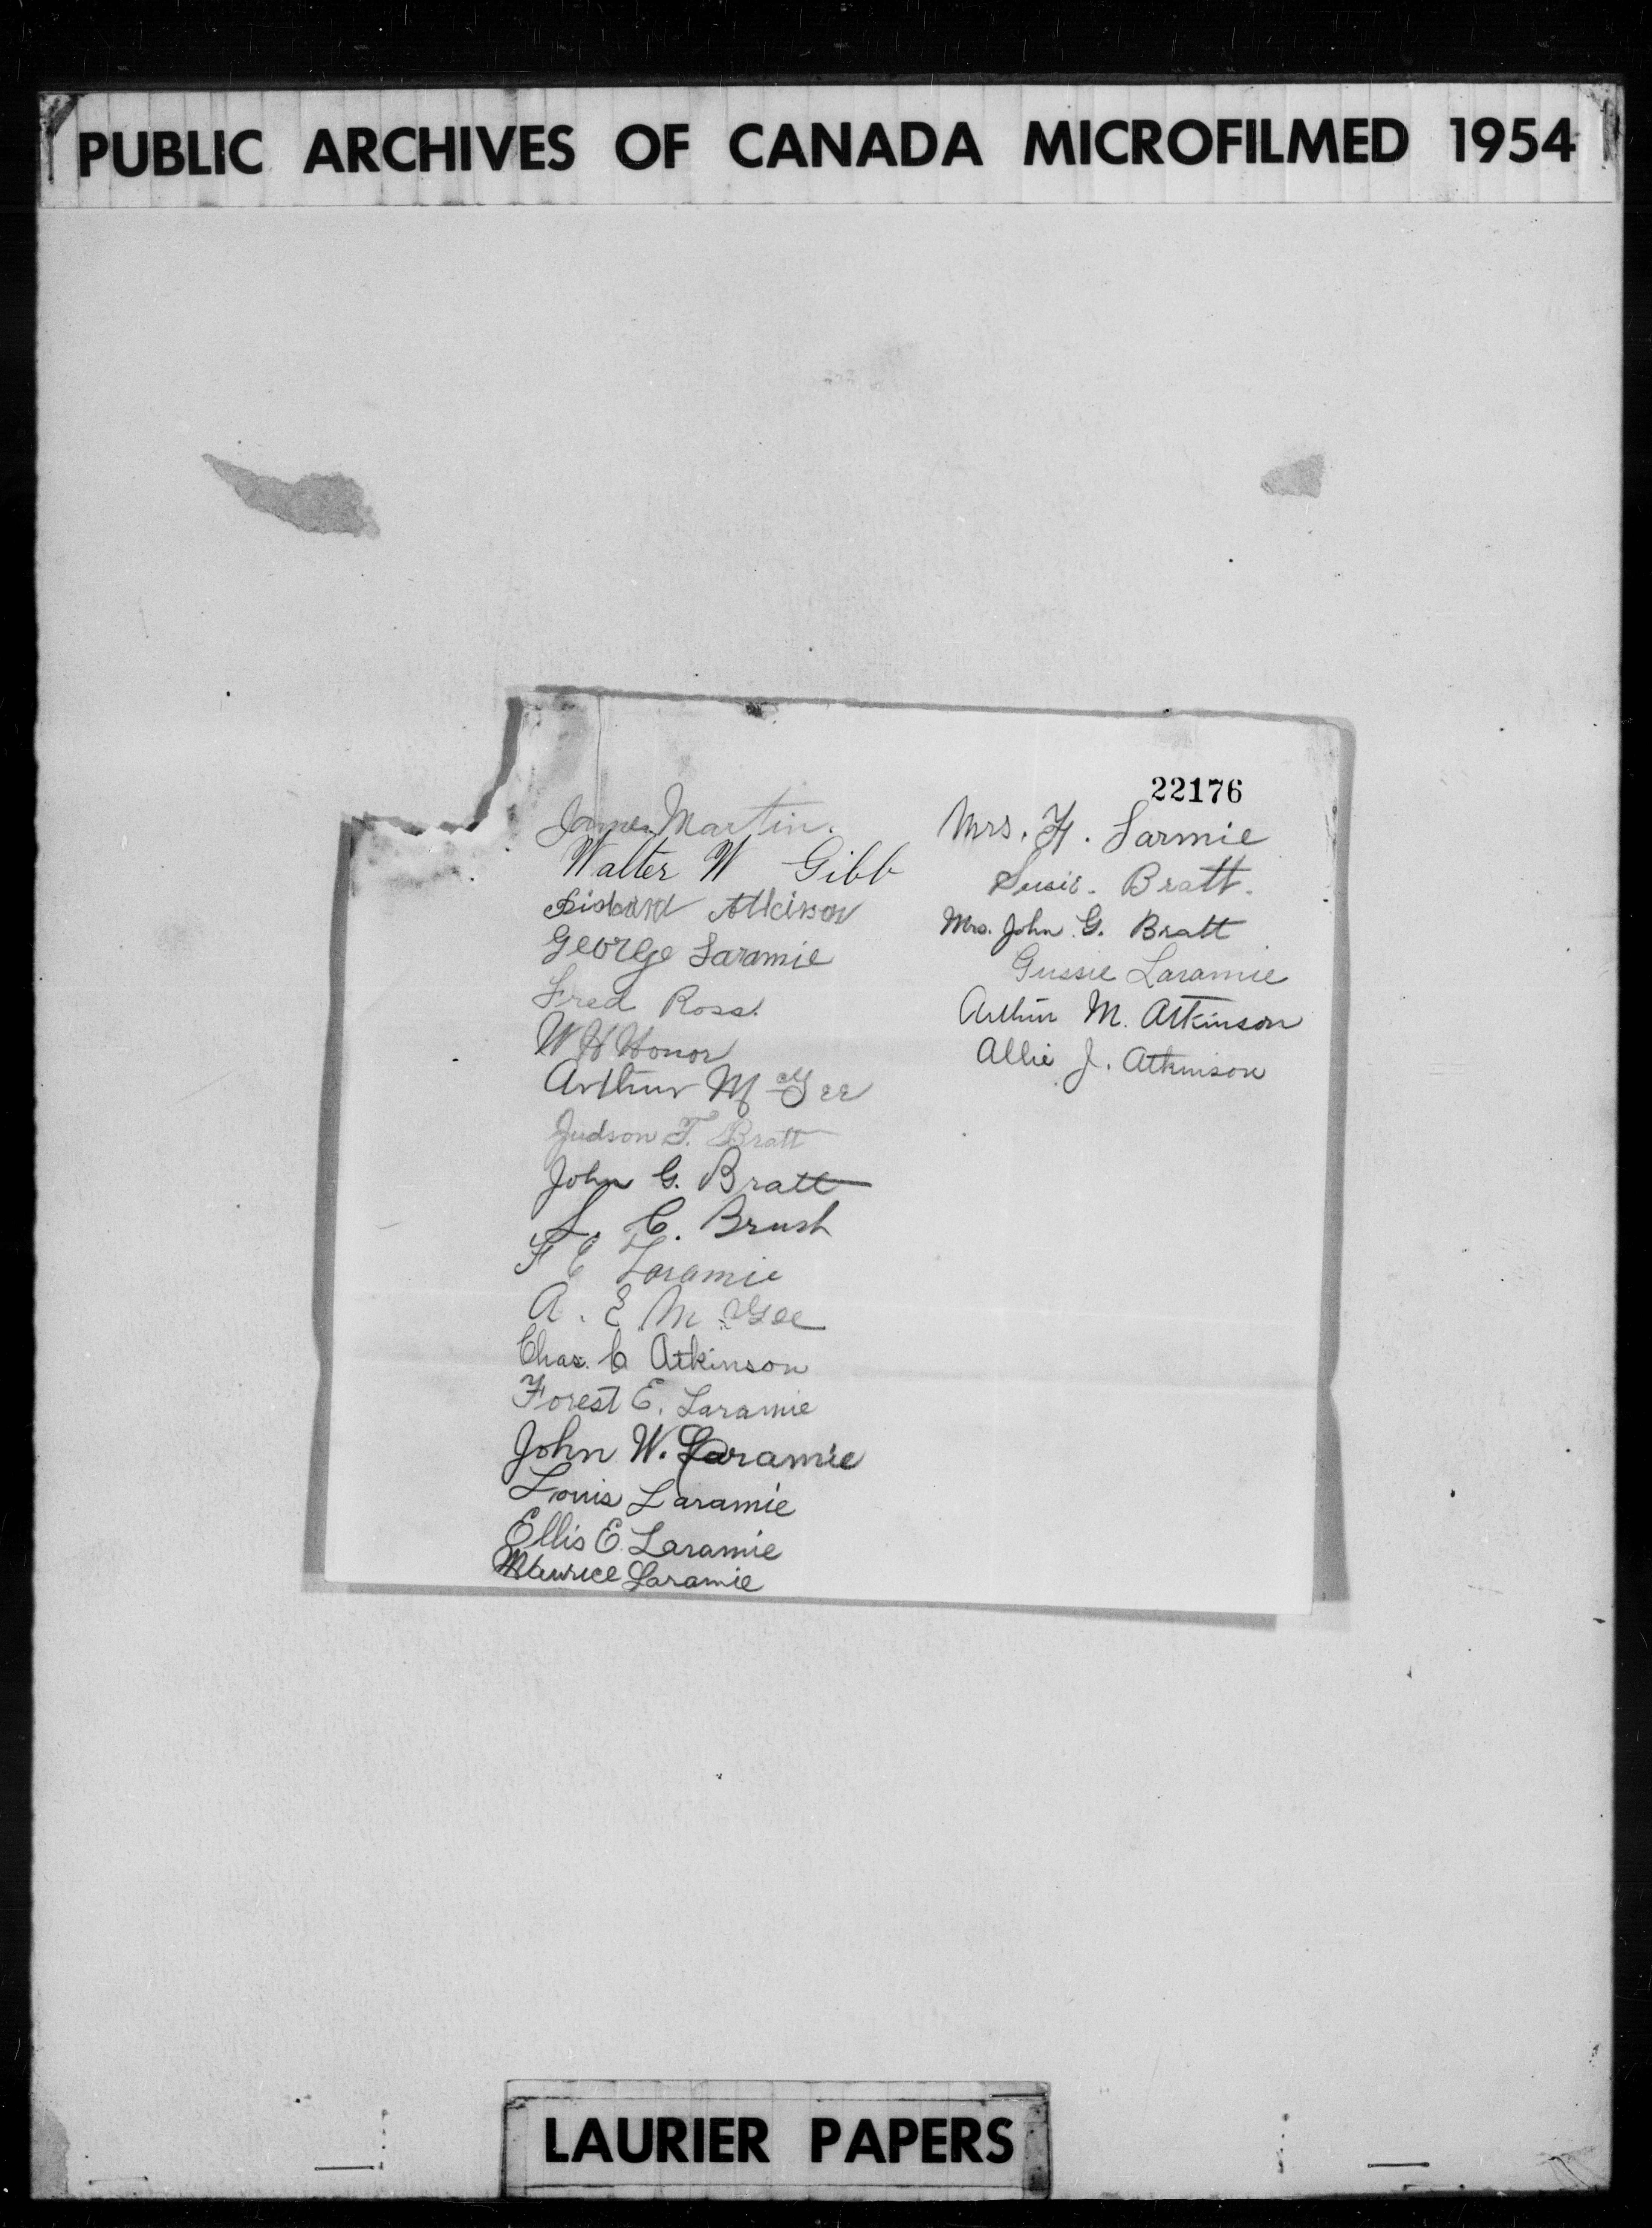 PUBLIC ARCHIVES OF CANADA MICROFILMED 1954
22176
James Martin.
Walter W Gibb
Atkinson
George Laramie
Fred Ross.
W H Honor
Arthur McGee
Judson T. Bratt
John G. Bratt
L. C. Brush
F E Laramie
A. E. McGee
Chas. C Atkinson
Forest E. Laramie
John W. Laramie
Louis Laramie
Ellis E. Laramie
Maurice Laramie
Mrs. F. Larmie
Susie. Bratt.
Mrs. John G. Bratt
Gussie Laramie
Arthur M. Atkinson
Allie J. Atkinson
LAURIER PAPERS